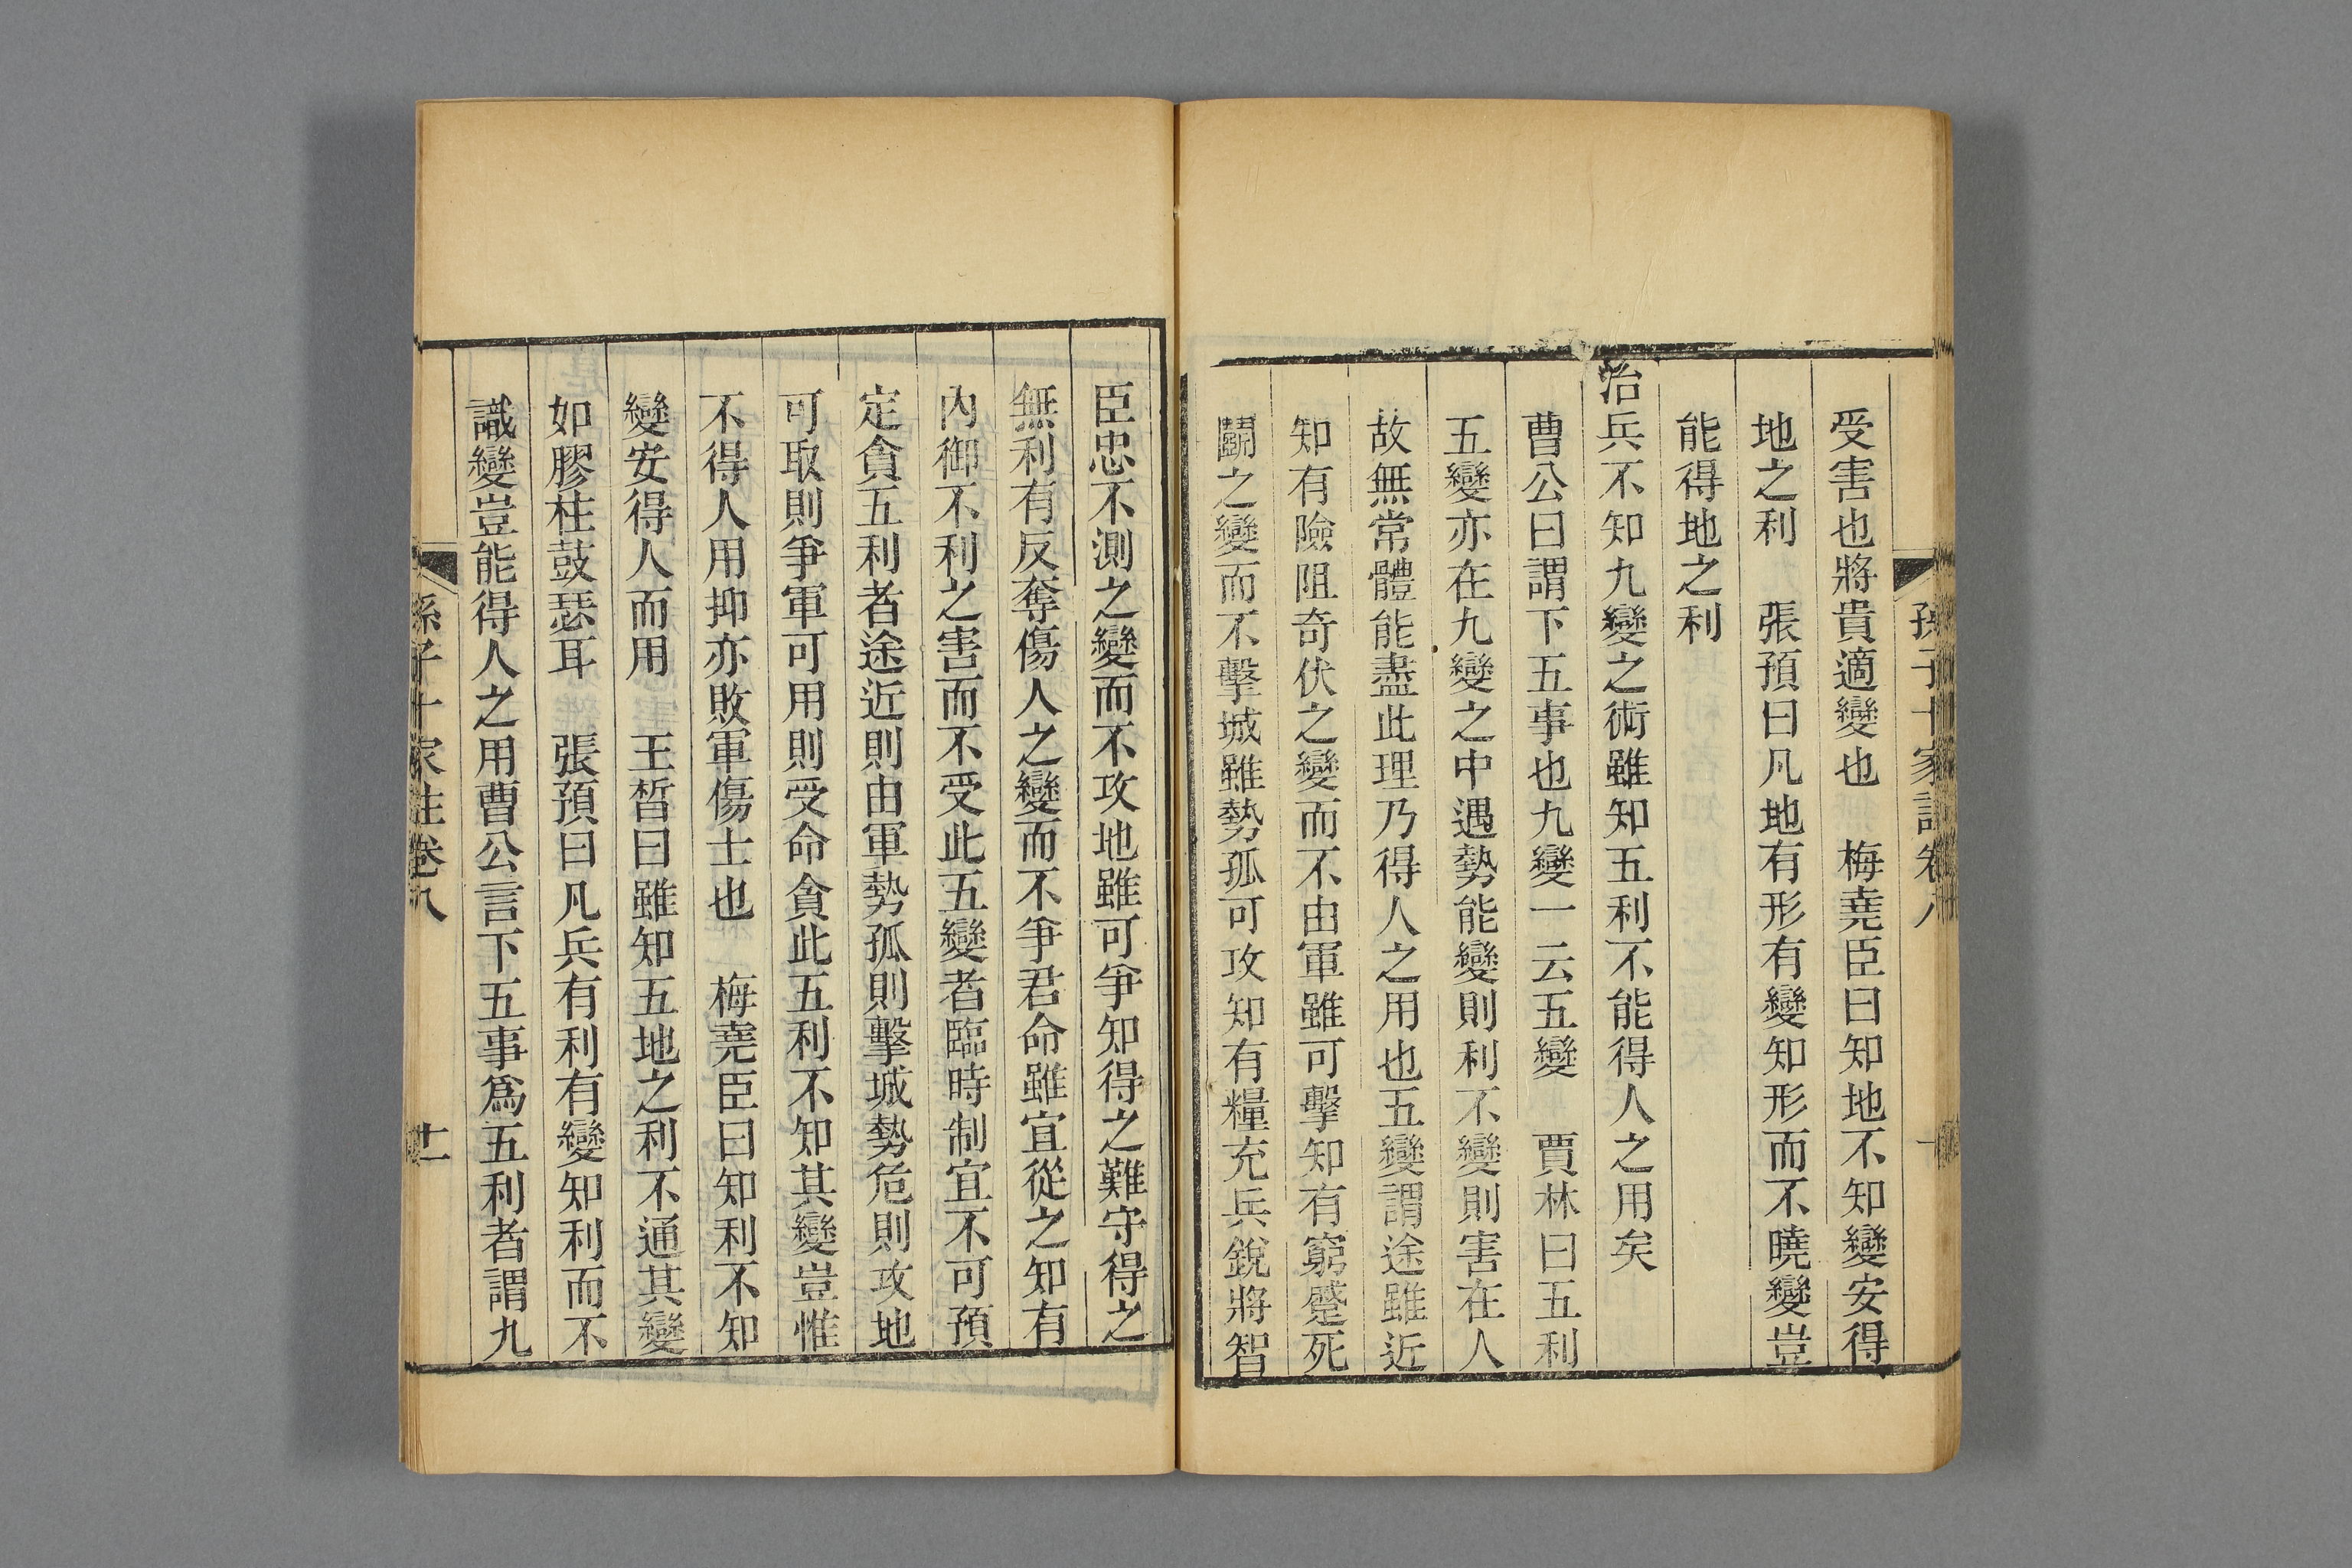 孫子十家註卷八
受害也將貴適變也　梅堯臣曰知地不知變安得
地之利　張預曰凡地有形有變知形而不曉變豈
能得地之利
治兵不知九變之術雖知五利不能得人之用矣
曹公曰謂下五事也九變一云五變　賈林曰五利
五變亦在九變之中遇勢能變則利不變則害在人
故無常體能盡此理乃得人之用也五變謂途雖近
知有險阻奇伏之變而不由軍雖可擊知有窮蹙死
鬭之變而不擊城雖勢孤可攻知有糧充兵銳將智
臣忠不測之變而不攻地雖可爭知得之難守得之
無利有反奪傷人之變而不爭君命雖宜從之知有
內御不利之害而不受此五變者臨時制宜不可預
定貪五利者途近則由軍勢孤則擊城勢危則攻地
可取則爭軍可用則受命貪此五利不知其變豈惟
不得人用抑亦敗軍傷士也　梅堯臣曰知利不知
變安得人而用　王晳曰雖知五地之利不通其變
如膠柱鼓瑟耳　張預曰凡兵有利有變知利而不
識變豈能得人之用曹公言下五事爲五利者謂九
孫子十家註卷八　十一